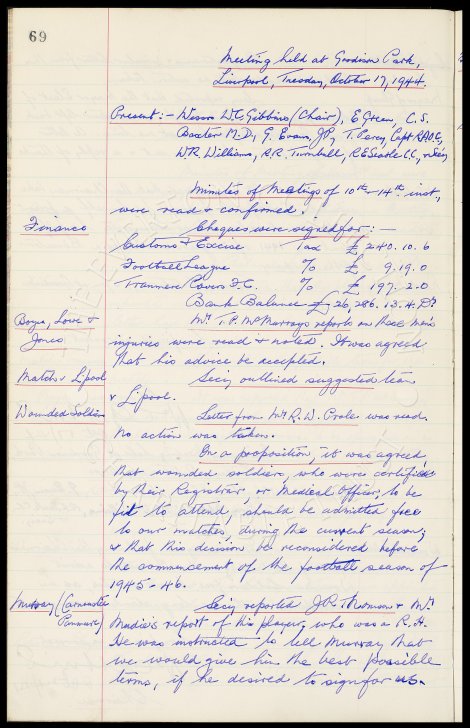 69
Meeting held at Goodison Park,
Liverpool, Tuesday, October 17, 1944.
Present:- Messrs W.C. Gibbins (Chair), E. Green, C.S.
Baxter M.D., G. Evans, J.P., T. Percy, Capt R.A.O.C,
W.R. Williams, R.R. Turnbull, R.E. Searle C.C, & Secy
Minutes of Meetings of 10th & 14th inst,
were read & confirmed.
Finance
Cheques were signed for:-
Customs & Excise Tax £ 240. 10. 6
Football League % £ 9. 19. 0
Tranmere Rovers F.C. % £ 197. 2. 0
Bank Balance £26,286. 13. 4. Dr
Boyes, Lowe &
Jones
Mr. T.P. McMurray's reports on these men's
injuries were read & noted. It was agreed
that his advice be accepted.
Match v L'pool
Secy outlined suggested team
v L'pool.
Wounded Soldiers
Letter from Mr R.W. was read.
No action was taken.
On a proposition, it was agreed
that wounded soldiers, who were certified
by their Registrar, or Medical Officer, to be
fit to attend, should be admitted free
to our matches, during the current season;
& that this decision be reconsidered before
the commencement of the football season of
1945-46.
Murray (Carnoustie
Panmure)
Secy reported J.R. Thomson & Mr.
report of this player, who was a R.H.
He was instructed to tell Murray that
we would give him the best possible
terms, if he desired to sign for us.